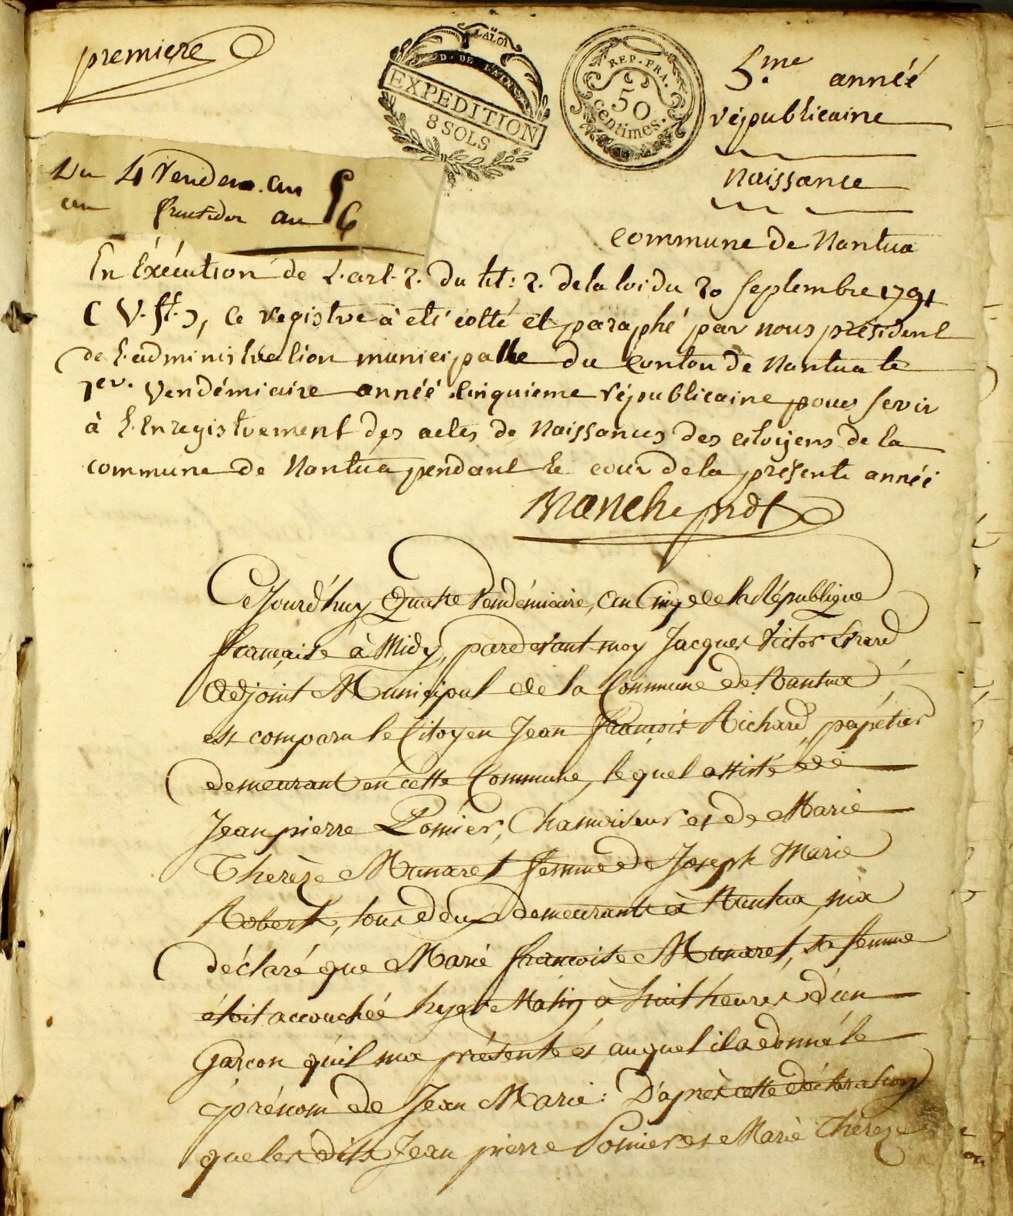 première
LA LOI
EXPEDITION
8 SOLS
REP. FRA.
50
centimes.
5.me année
républicaine
Naissance
Du 4 Vendem. an 5
au fructidor an 6
Commune de Nantua
En Exécution de L'art. 2. du tit: 2. de la loi du 20 septembre 1791
( V. st. ), ce registre à eté cotté et paraphé par nous président
de l'administration municipalle du Canton de Nantua le
1er. Vendémiaire année Cinquieme républicaine pour servir
à l'Enregistrement des actes de Naissances des citoyens de la
commune de Nantua pendant le cour de la présente année
prdt
Cejourd'huy Quatre Vendémiaire, an Cinq de la République
française à Midy, pardevant moy Jacques Victor
Adjoint Municipal de la Commune de Nantua
est comparu le Citoyen Jean françois Richard, papétier
demeurant en cette Commune, lequel assisté de
Jean pierre Chamoiseur et de Marie
Thérèze Munaret femme de Joseph Marie
Robert, tous deux demeurants à Nantua, ma
déclaré que Marie françoise Munaret, sa femme
étoit accouchée hyer Matin à huit heures d'un
Garçon qu'il ma présenté et auquel il a donné le
prénom de Jean Marie: D'après cette déclaration
que les dits Jean pierre et Marie Thérèze